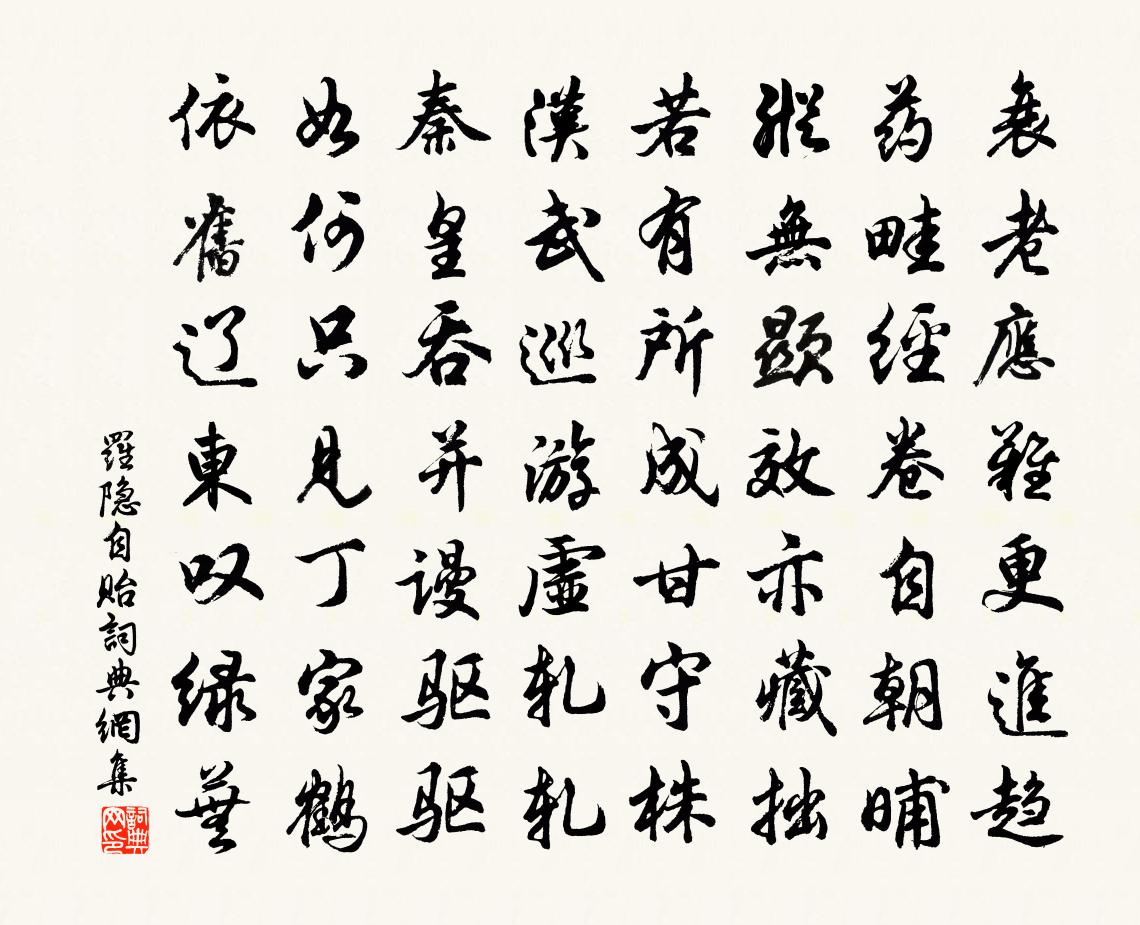 衰老應難更進趋
药畦經卷自朝晡
縱無顯效亦藏拙
若有所成甘守株
漢武巡游虛轧轧
秦皇吞并謾驱驱
如何只見丁家鶴
依舊辽東叹绿蕪
羅隐自貽詞典網集
詞典网印